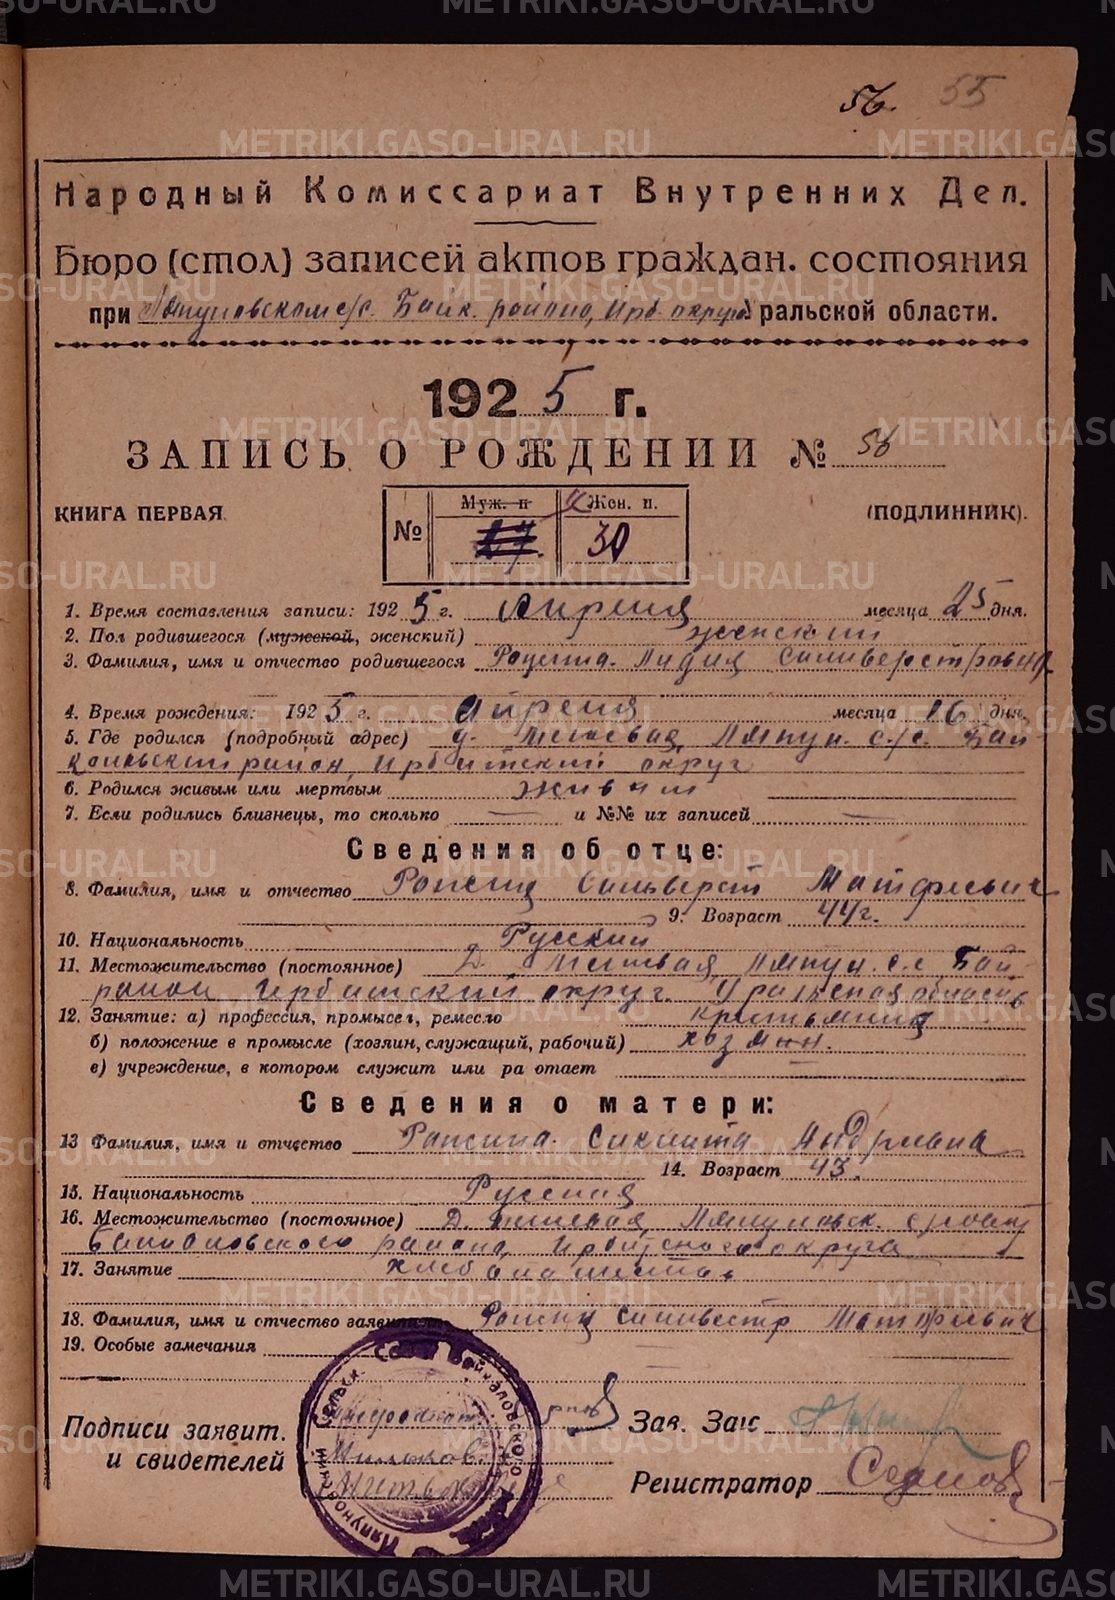 METRIKI.GASO-URAL.RU
56. 55
Народный Комиссариат Внутренних Дел.
Бюро (стол) записей актов граждан. состояния
при Ляпуновском с/с. Байк. района, Ирб. округа Уральской области.
1925 г.
ЗАПИСЬ О РОЖДЕНИИ № 56
КНИГА ПЕРВАЯ
(ПОДЛИННИК).
№ Муж. п Жен. п.
27. 30
1. Время составления записи: 1925 г. Апреля месяца 25 дня.
2. Пол родившегося (мужской, женский) женский
3. Фамилия, имя и отчество родившегося Лидия Сильверстровна
4. Время рождения: 1925 г. Апреля месяца 16 дня.
5. Где родился (подробный адрес) д. Ляпун. с/с. Бай
каловский район, Ирбитский округ
6. Родился живым или мертвым живым
7. Если родились близнецы, то сколько — и №№ их записей —
Сведения об отце:
8. Фамилия, имя и отчество Сильверст Матфеевич
9. Возраст 44 г.
10. Национальность Русский
11. Местожительство (постоянное) Д. Ляпун. с.с. Бай
район Ирбитский округ. Уральская область
12. Занятие: а) профессия, промысел, ремесло крестьянин
б) положение в промысле (хозяин, служащий, рабочий) хозяин.
в) учреждение, в котором служит или ра отает —
Сведения о матери:
13 Фамилия, имя и отчество Андреевна
14. Возраст 43.
15. Национальность Русская
16. Местожительство (постоянное) Д. Ляпуновск. с/совет
Байкаловского района, Ирбитского округа
17. Занятие
18. Фамилия, имя и отчество заявителя Силивестр Матфеевич
19. Особые замечания
Подписи заявит.
и свидетелей
Мильков.
Зав. Загс
Регистратор